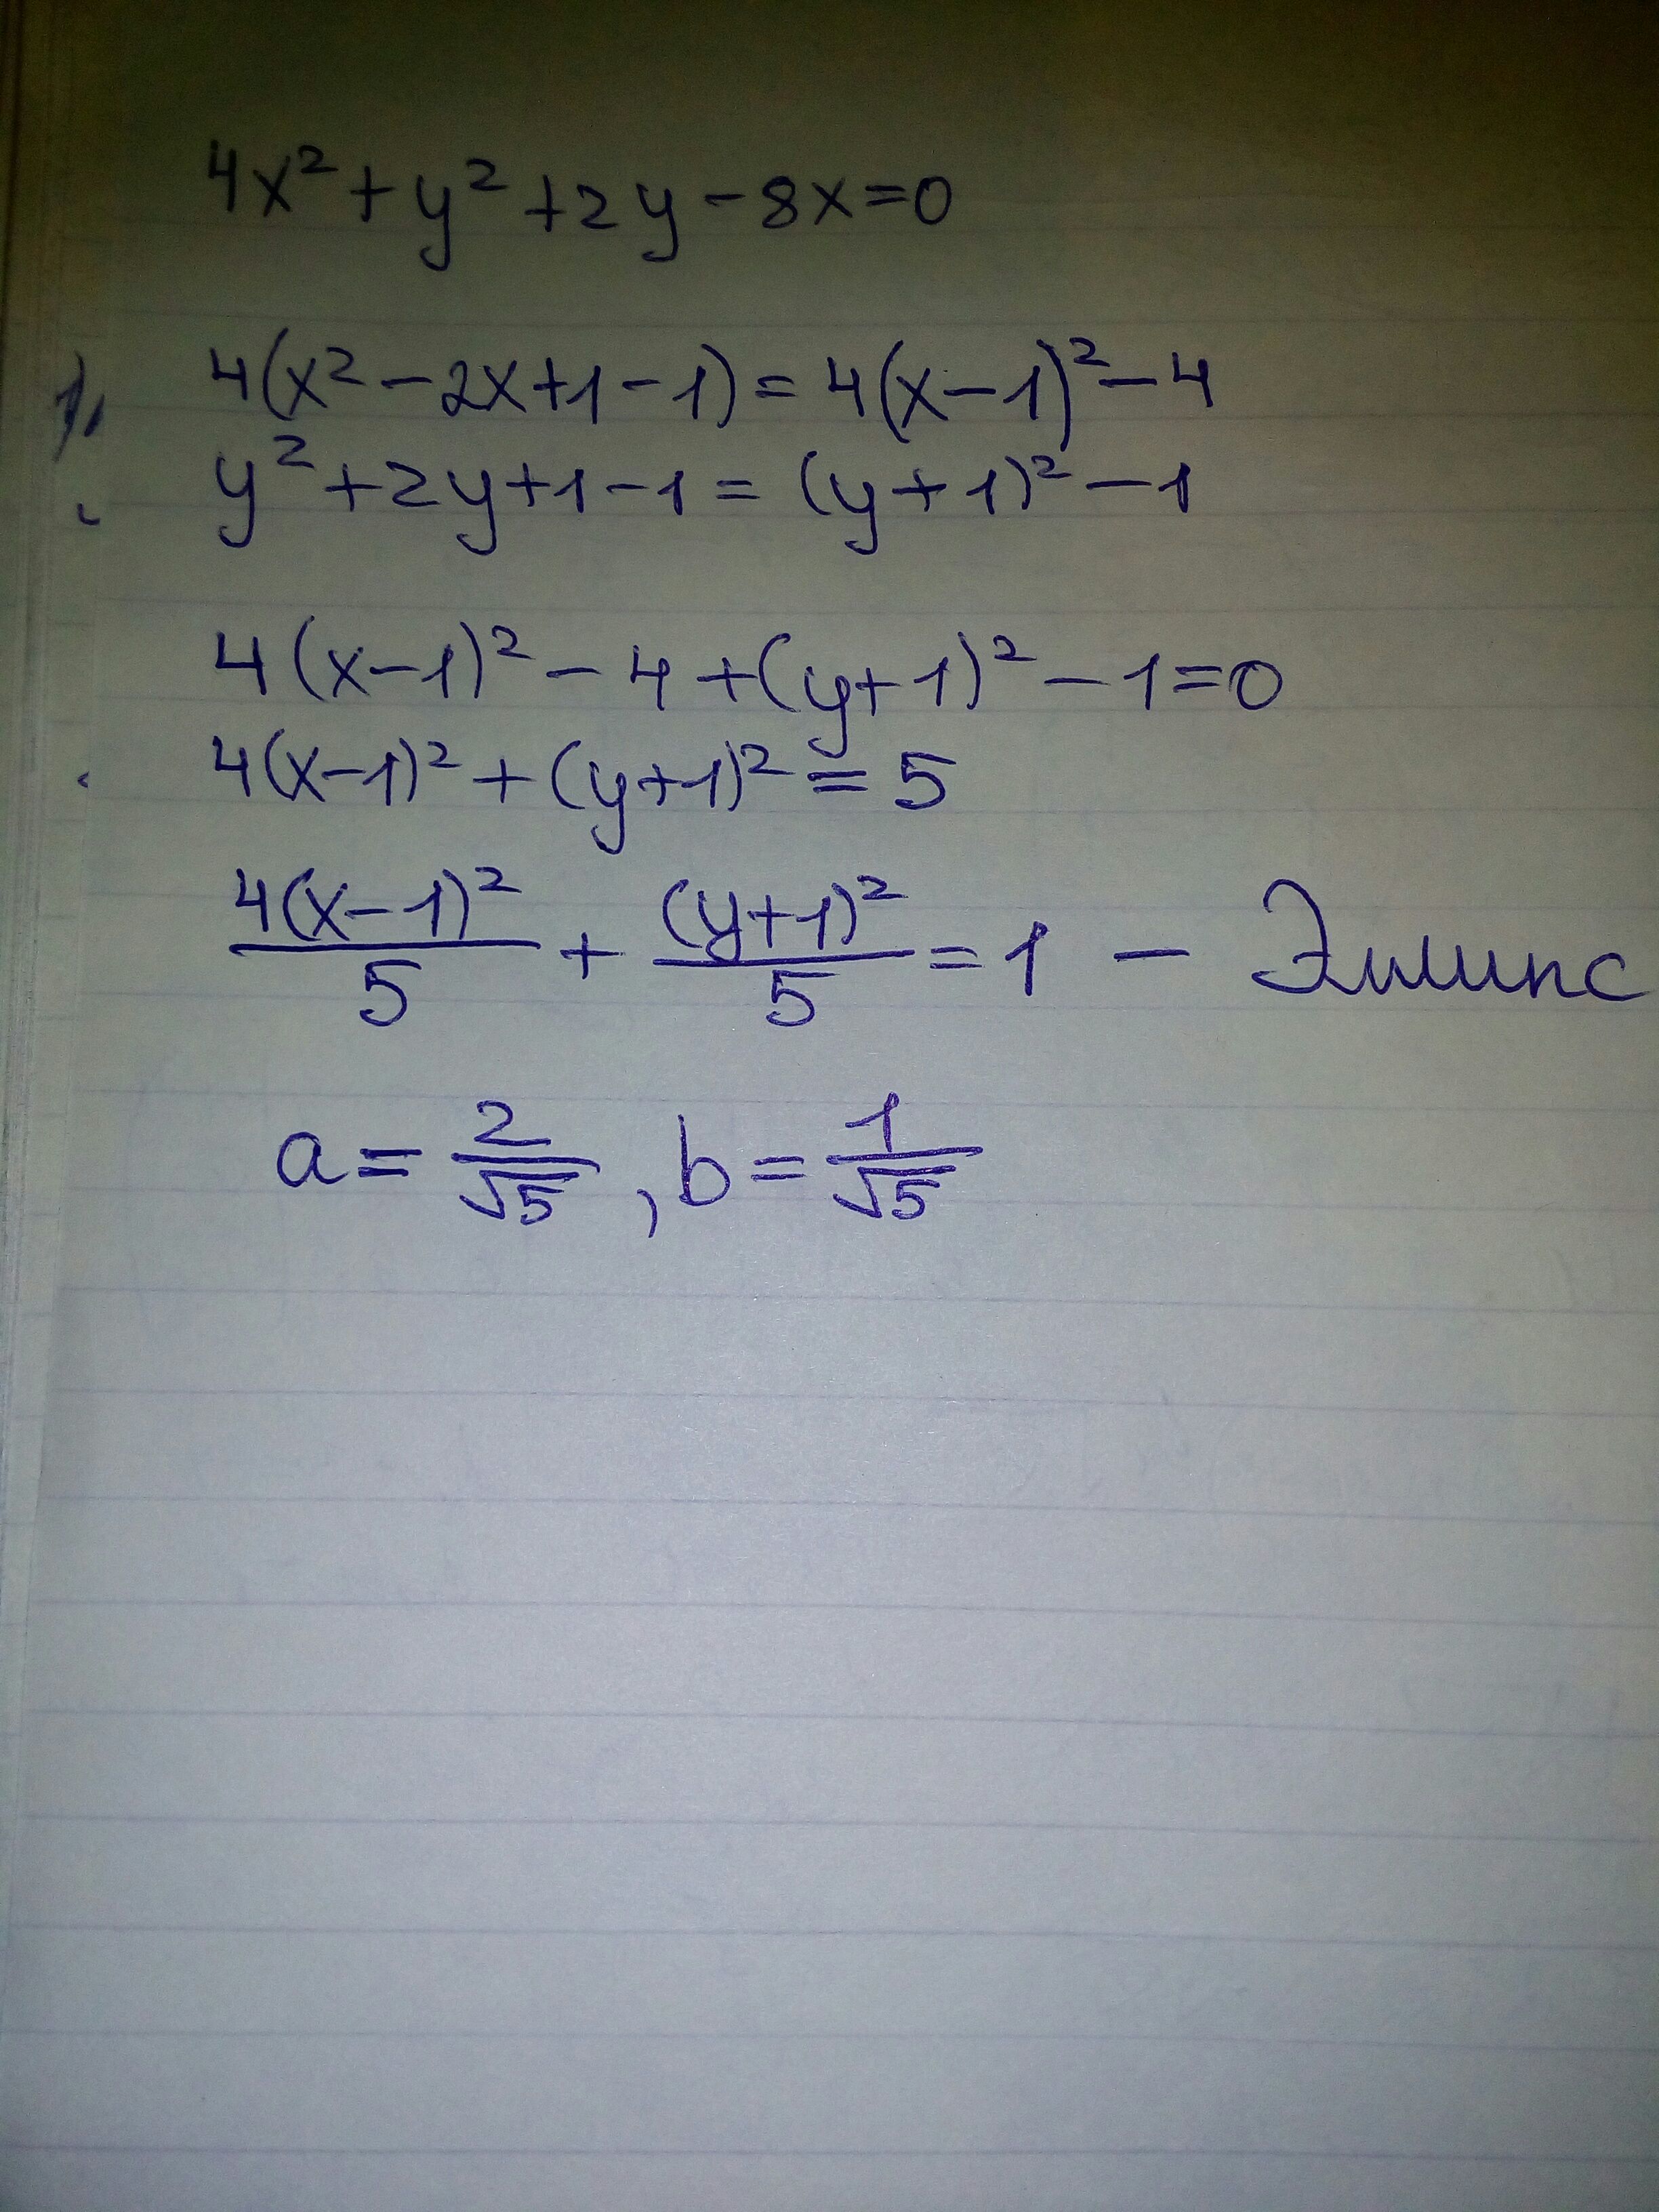 4x² + y² + 2y - 8x = 0
4(x² - 2x + 1 - 1) = 4(x - 1)² - 4
y² + 2y + 1 - 1 = (y + 1)² - 1
4(x - 1)² - 4 + (y + 1)² - 1 = 0
4(x - 1)² + (y + 1)² = 5
4(x - 1)²/5 + (y + 1)²/5 = 1 - Эллипс
a = 2/√5, b = 1/√5